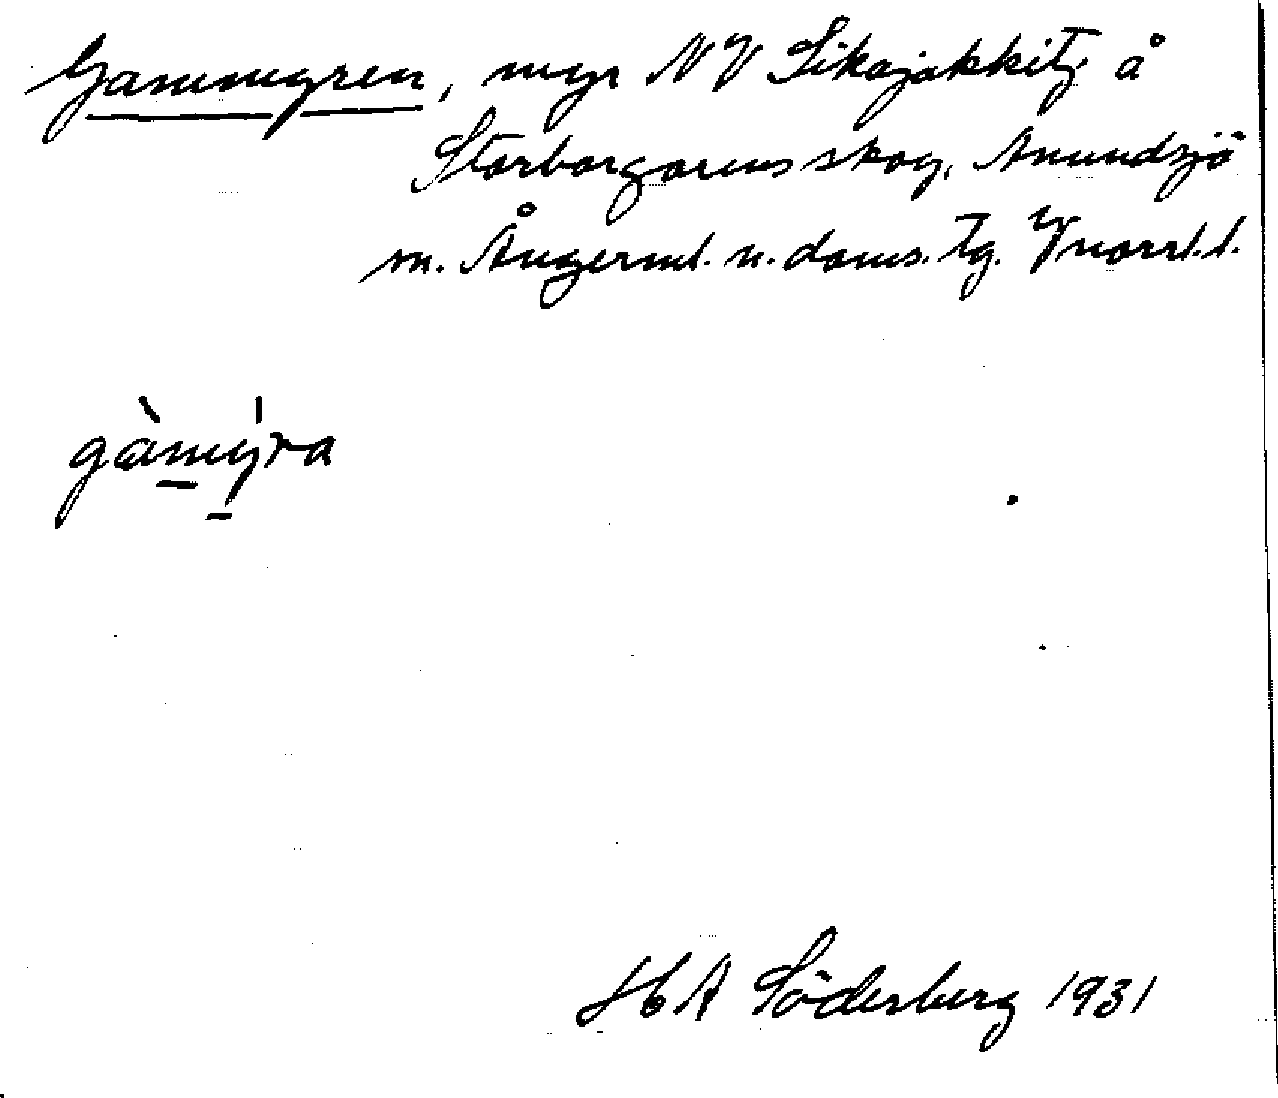 Gammyren, myr NV Sikajakkitj. å
Storborgarens skog, Anundsjö
sn. Ångerml. n. doms. tg. Vnorrl. l.
gàmýra
H A Söderberg 1931